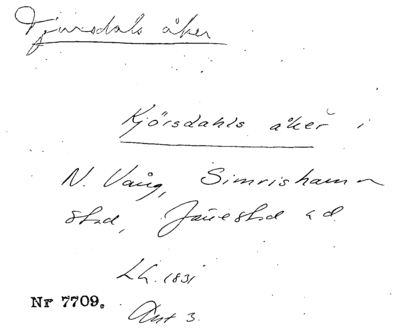 Tjörsdals åker
Kjörsdahls åker i
N. Vång, Simrishamn
stad, Järrestad ad
LA. 1831
Nr 7709. Akt 3.